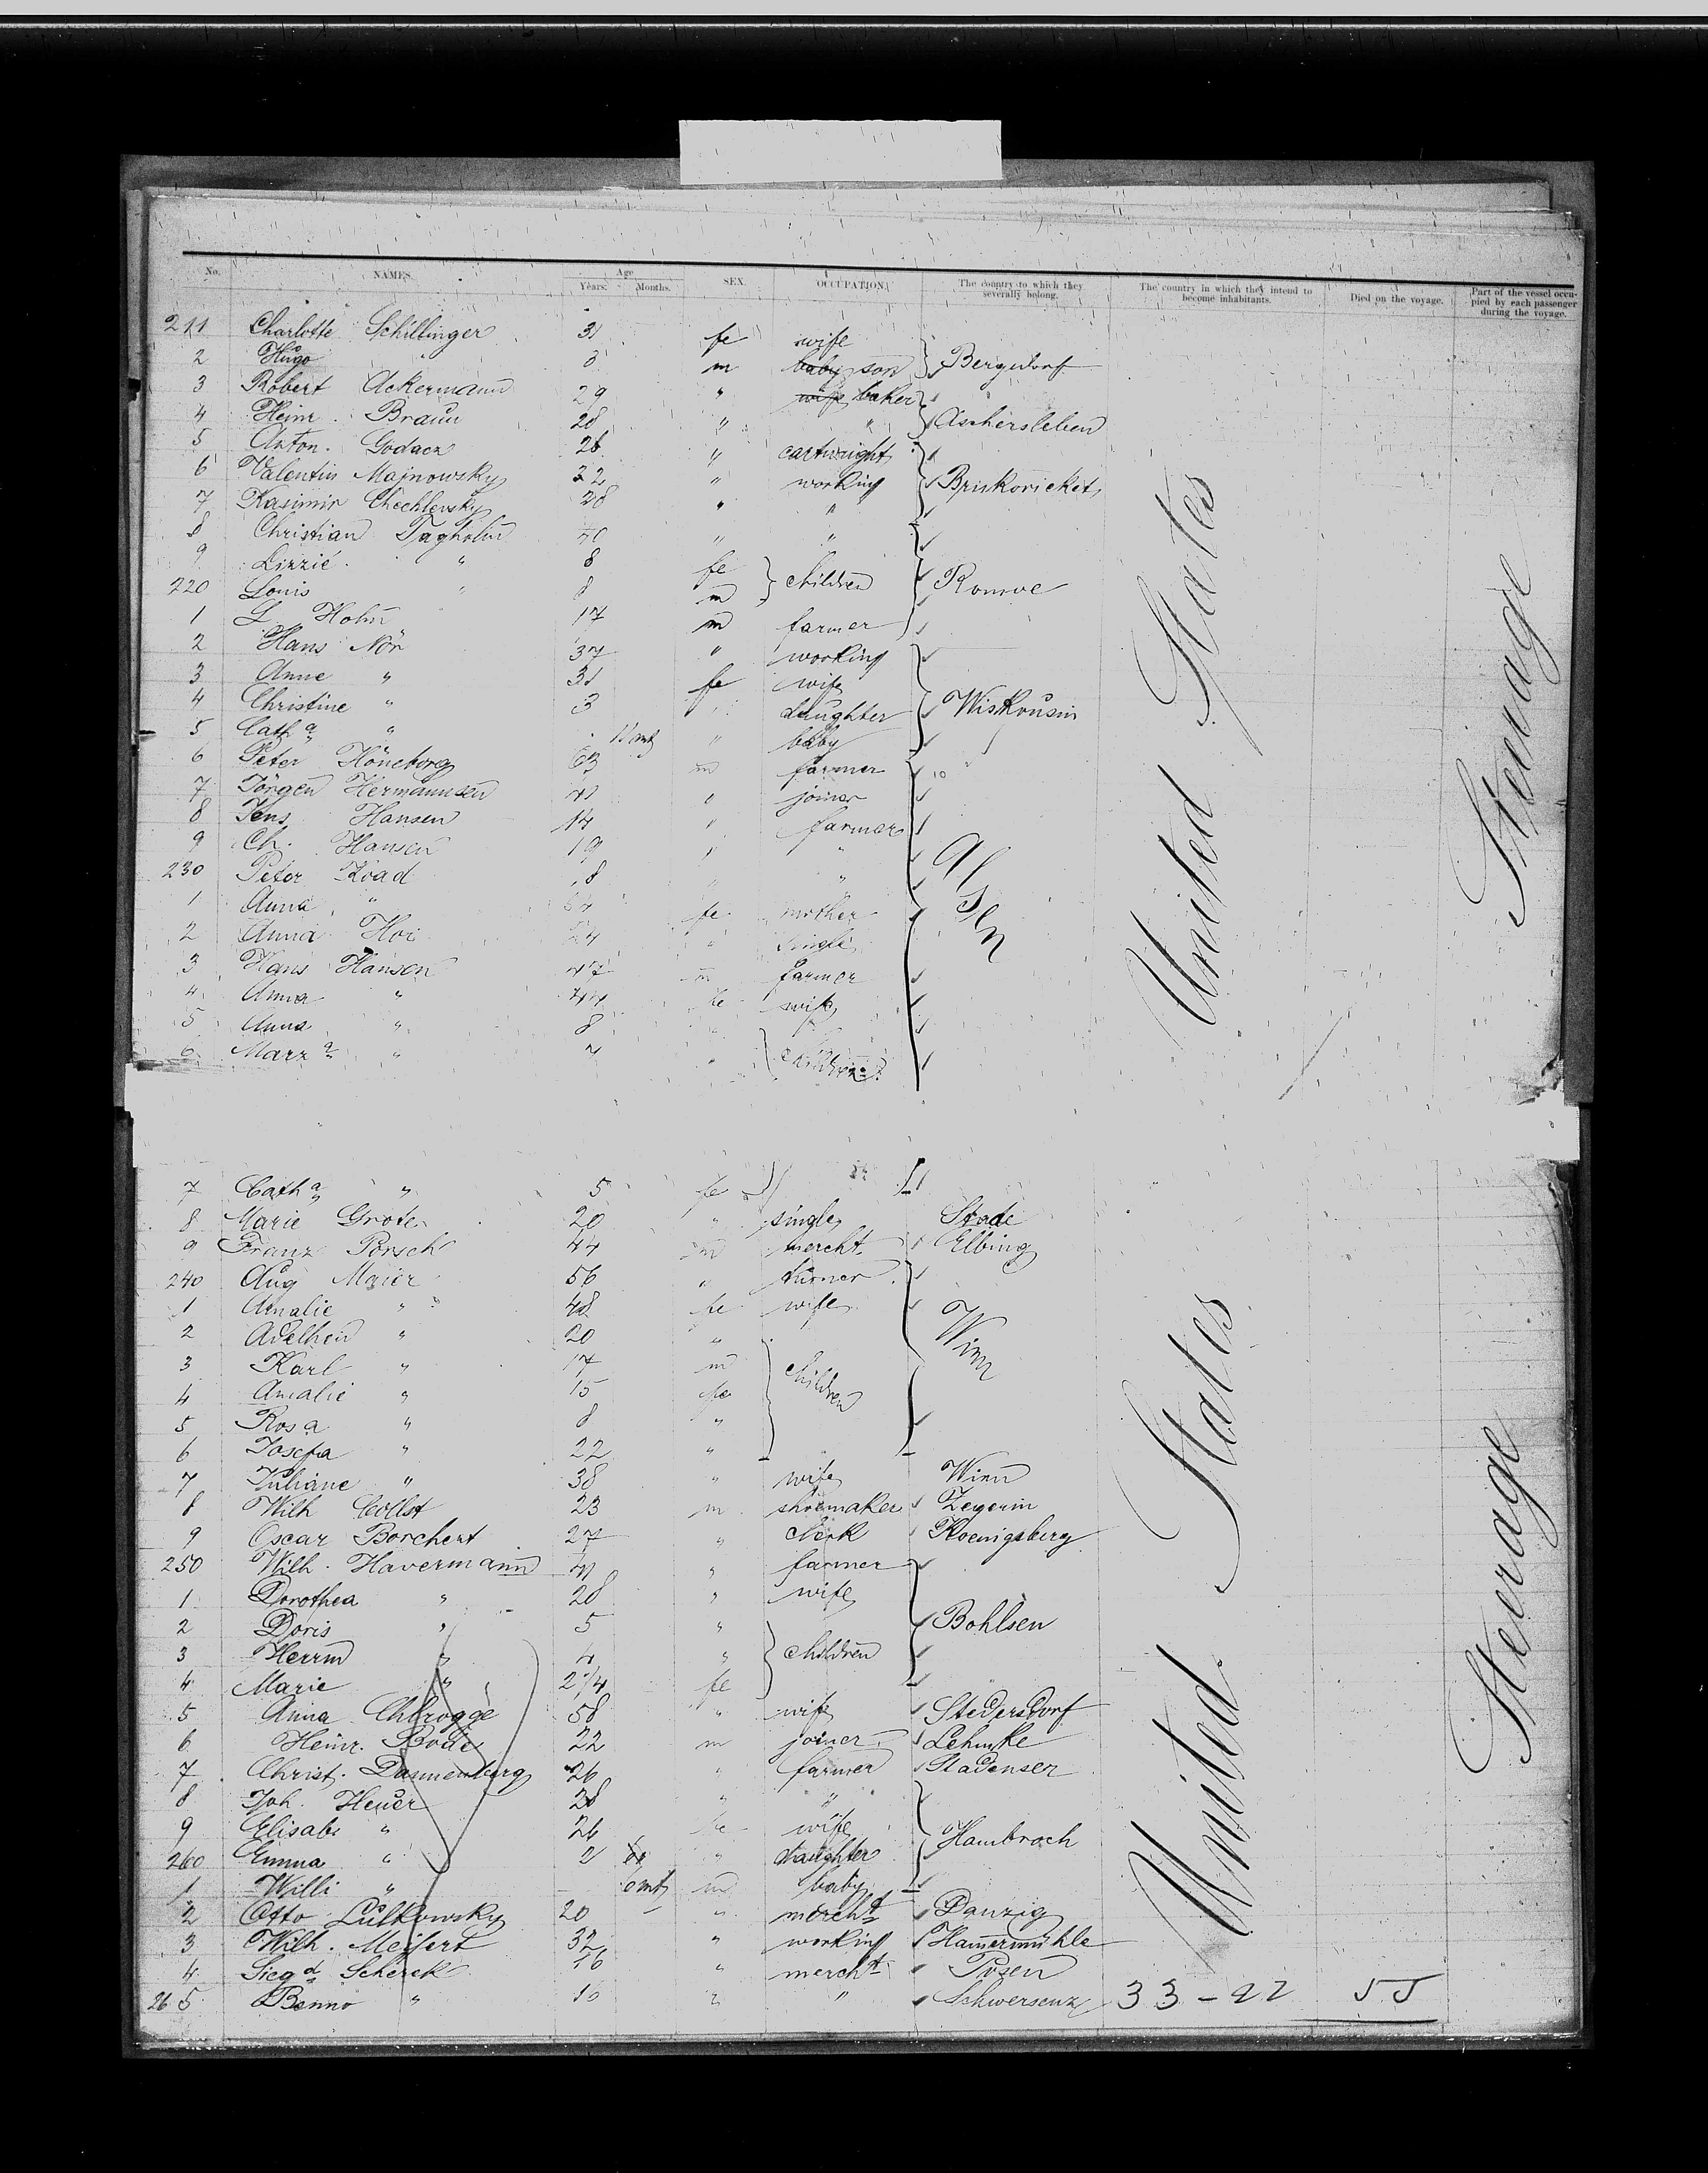 No. NAMES. Age Years. Months. SEX. OCCUPATION. The country to which they severally belong. The country in which they intend to become inhabitants. Died on the voyage. Part of the vessel occupied by each passenger during the voyage.
211 Charlotte Schillinger 31 fe wife
2 Hugo " m baby son Bergedorf
3 Robert Ackermann 29 " wife baker
4 Heinr. Braun 28 " " Aschersleben
5 Anton. Godacz 26 " cartwright
6 Valentin Majnowsky 22 " working
7 Kasimir Chechlevsky 28 " "
8 Christian Tagholm 40 " "
9 Lizzie " 8 fe children Romoe
220 Louis " 8 m
1 L Holm 17 m farmer
2 Hans Nör 37 " working
3 Anne " 31 fe wife
4 Christine " 3 " daughter Wiskousin
5 Cath a " 11 mts " baby
6 Peter Höneborg 63 m farmer
7 Jörgen Hermannsen 41 " joiner
8 Jens Hansen 14 " farmer
9 Ch. Hansen 19 " " Alsen
230 Peter Koad 18 " "
1 Anna " 64 fe mother
2 Anna Hoi 24 " single
3 Hans Hansen 47 m farmer
4 Anna " 44 fe wife
5 Anna " 8 "
6 Marz a " 7 " children
7 Cath a " 5 fe
8 Marie Grote 20 " single Stade
9 Franz Porsch 44 m mercht. Elbing
240 Aug Maier 56 " turner
1 Amalie " 48 fe wife Wien
2 Adelheid " 20 "
3 Karl " 17 m children
4 Amalie " 15 fe
5 Rosa " 8 "
6 Josefa " 22 "
7 Juliane " 38 " wife Wien
8 Wilh Collst 23 m shoemaker Zegerin
9 Oscar Borchert 27 " clerk Koenigsberg
250 Wilh. Havermann 41 " farmer
1 Dorothea " 28 " wife
2 Doris " 5 " Bohlsen
3 Herrm " 4 " children
4 Marie " fe
5 Anna 58 " wife Stedersdorf
6 Heinr. Bode 22 m joiner Lehmke
7 Christ. Dannenberg 26 " farmer Stadensen
8 Joh. Heuer 28 " "
9 Elisabe " 26 fe wife Hambroch
260 Emma " 2 " daughter
1 Willi " 6 mts m baby
2 Otto Lülkowsky 20 " mercht Danzig
3 Wilh. Meifert 32 " working Hamermühle
4 Sieg d Scherek 26 " mercht Posen
265 Benno " 10 " " Schwersenz 33-22 55
United States
Steerage
United States
Steerage